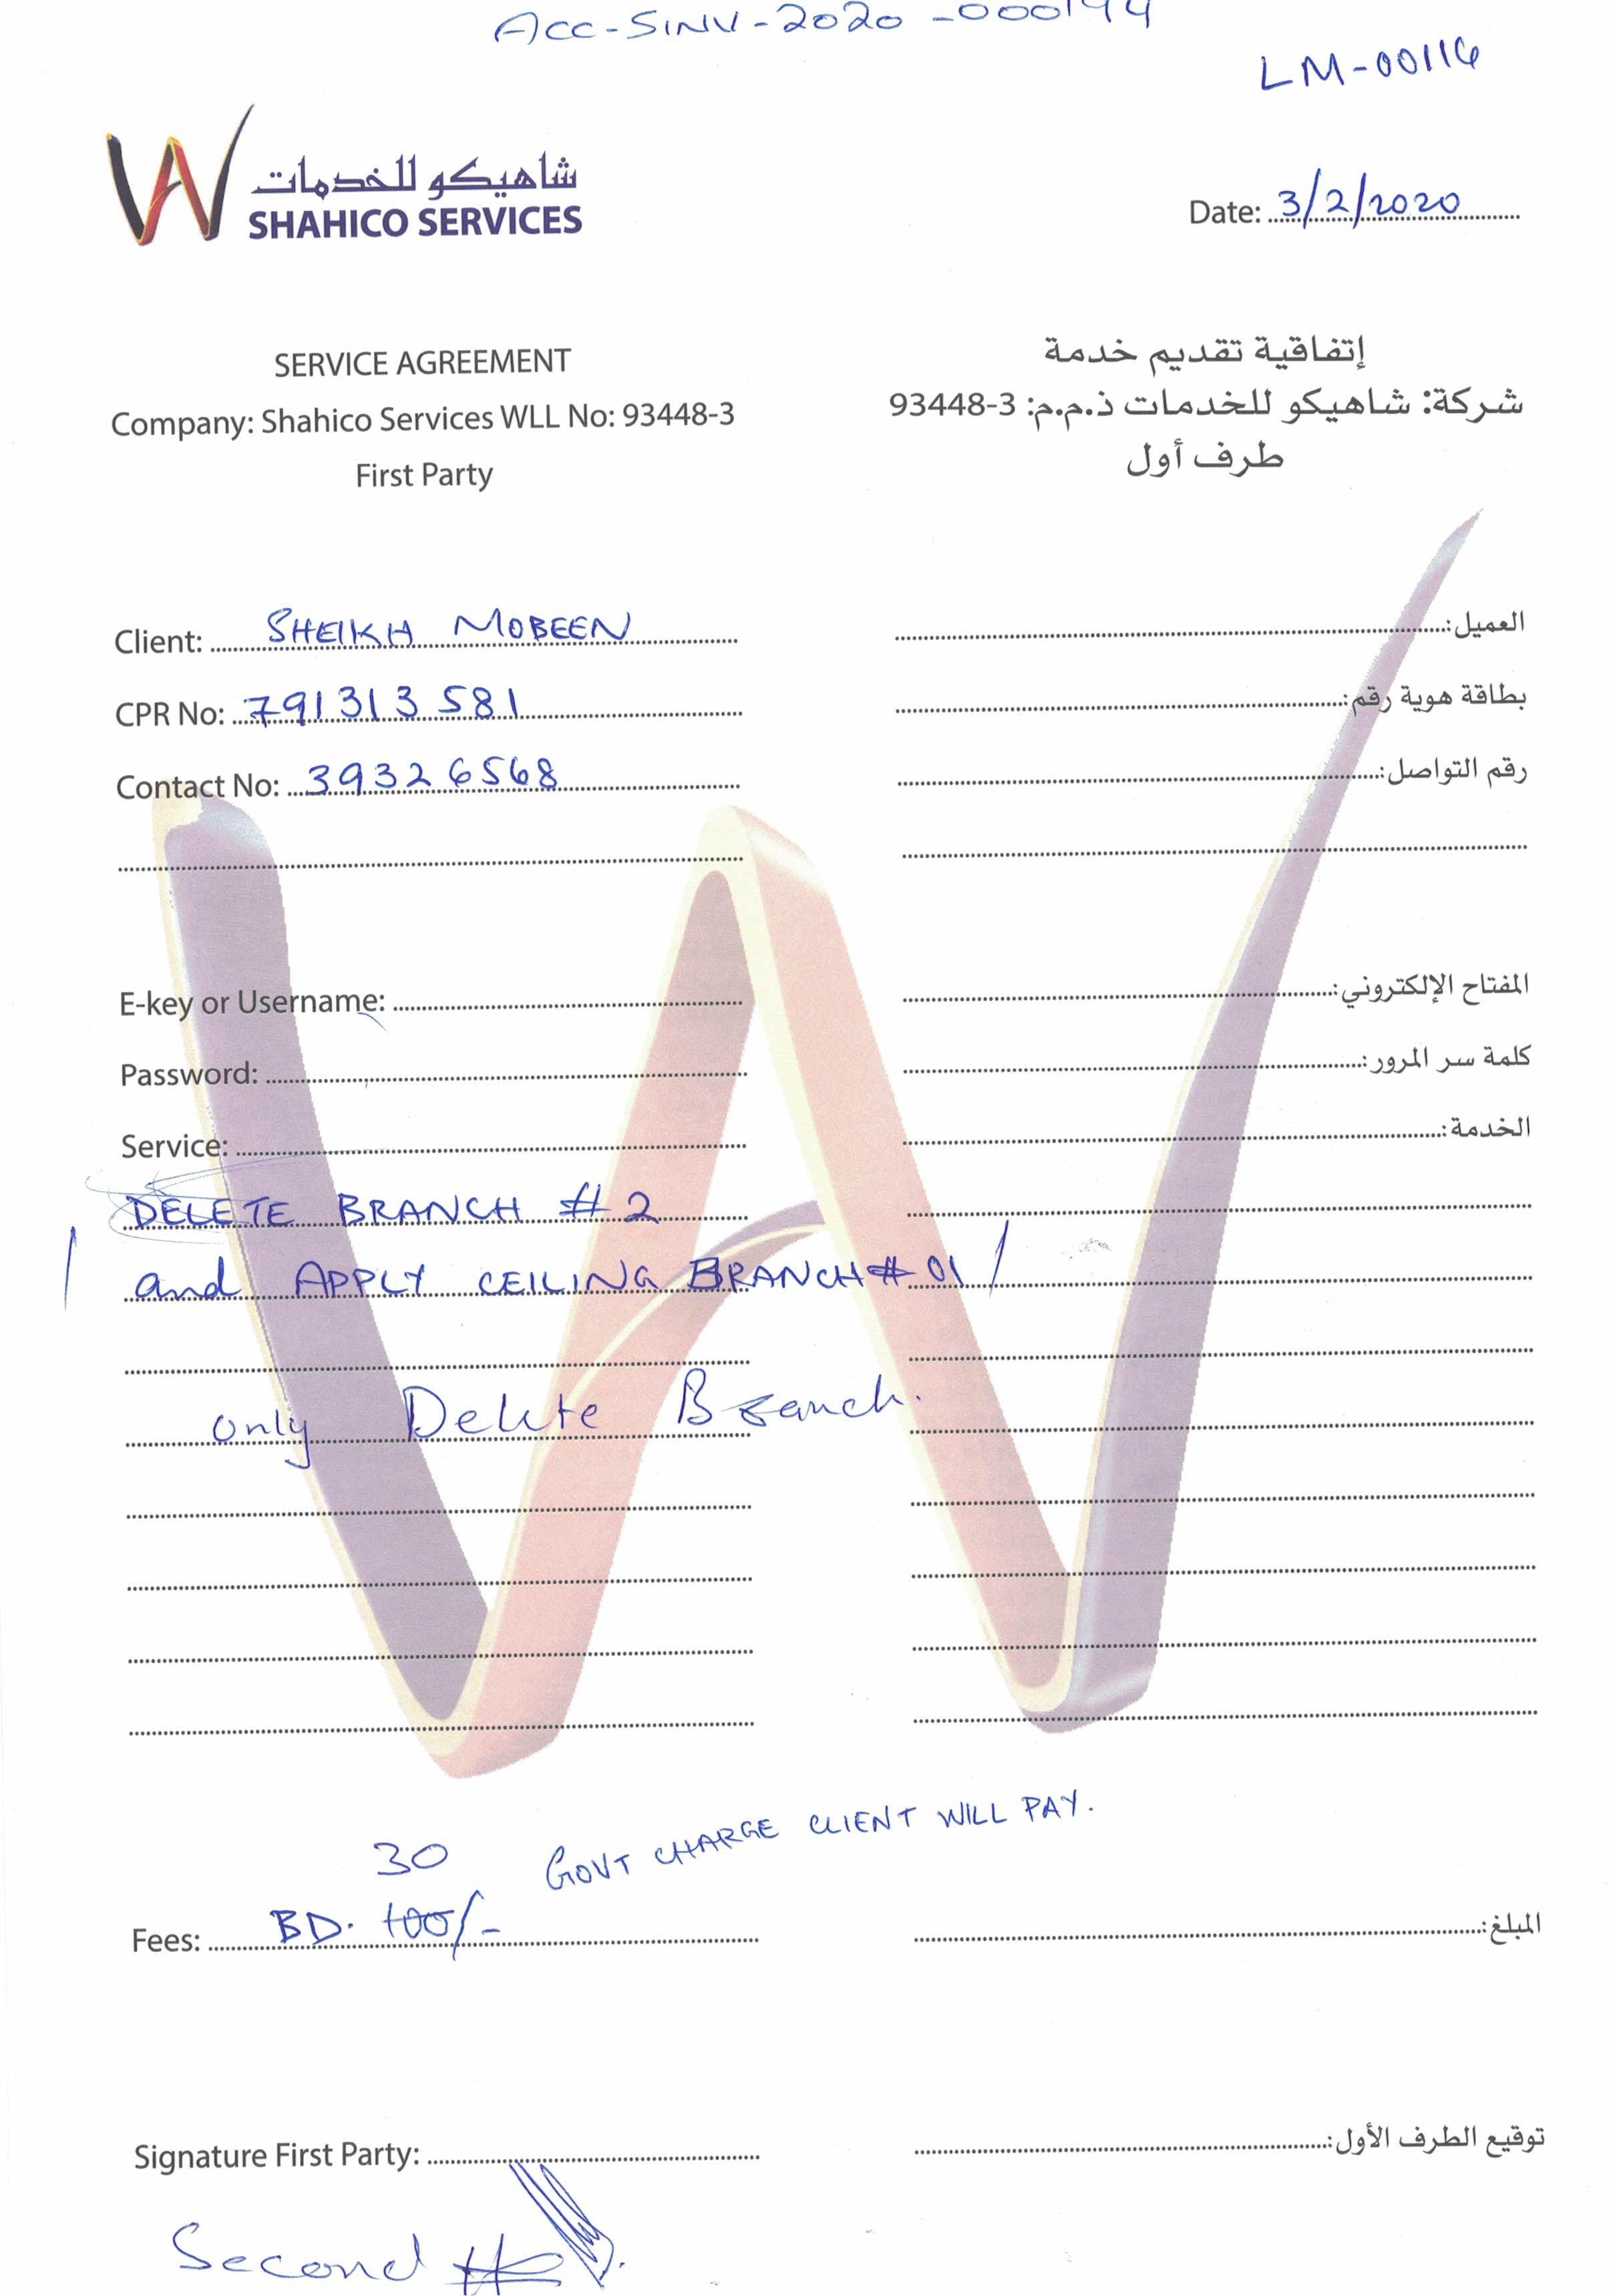 Acc-SINV-2020-000144
LM-00116
شاهيكو للخدمات
SHAHICO SERVICES
Date: 3/2/2020
SERVICE AGREEMENT
Company: Shahico Services WLL No: 93448-3
First Party
إتفاقية تقديم خدمة
شركة: شاهيكو للخدمات ذ.م.م: 3-93448
طرف أول
Client: SHEIKH MOBEEN
العميل:
CPR No: 791313581
بطاقة هوية رقم:
Contact No: 39326568
رقم التواصل:
E-key or Username:
المفتاح الإلكتروني:
Password:
كلمة سر المرور:
Service:
الخدمة:
DELETE BRANCH #2
and APPLY CEILING BRANCH # 01
only Delete Branch.
30 GOVT CHARGE CLIENT WILL PAY.
Fees: BD. 100/-
المبلغ:
Signature First Party:
توقيع الطرف الأول:
Second